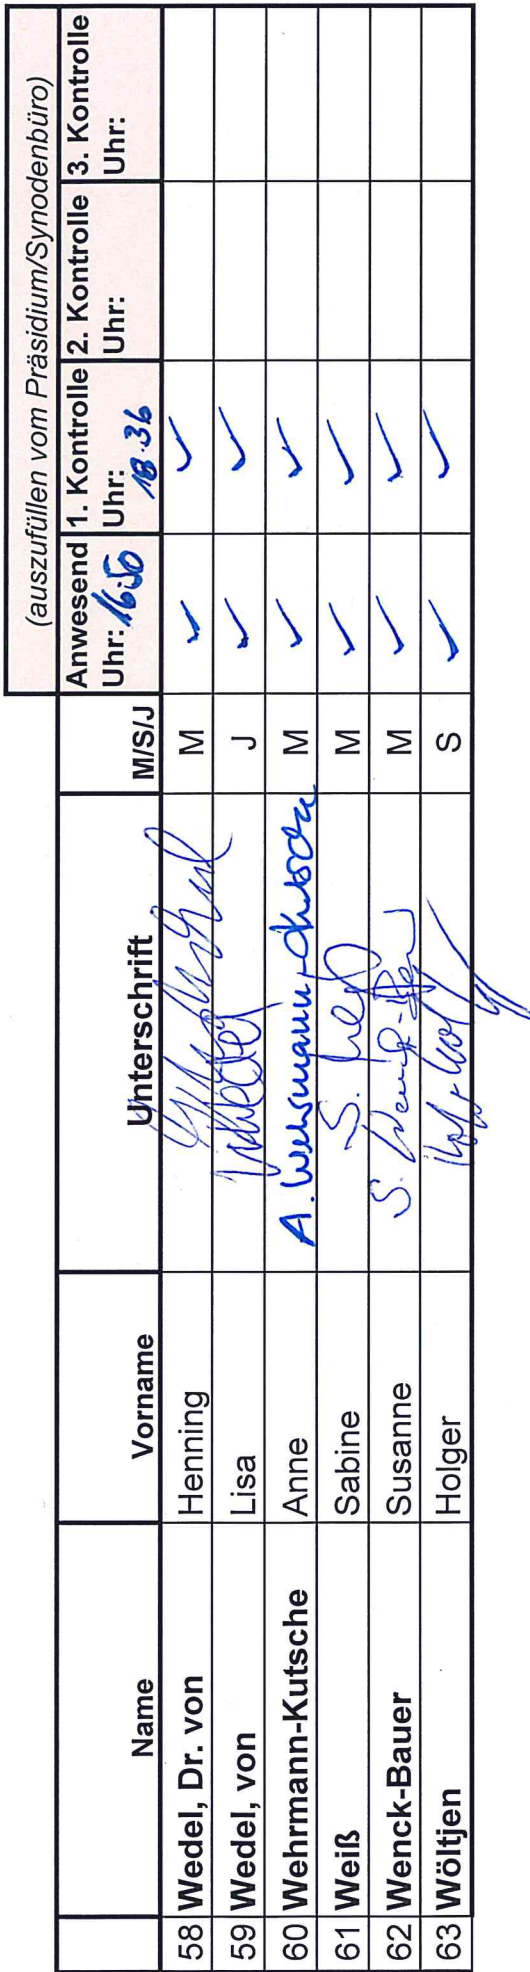 (auszufüllen vom Präsidium/Synodenbüro)
Name Vorname Unterschrift M/S/J Anwesend 1. Kontrolle 2. Kontrolle 3. Kontrolle
Uhr: 16:50 Uhr: 18.36 Uhr: Uhr:
58 Wedel, Dr. von Henning M ✓ ✓
59 Wedel, von Lisa J ✓ ✓
60 Wehrmann-Kutsche Anne A. Wehrmann-Kutsche M ✓ ✓
61 Weiß Sabine S. Weiß M ✓ ✓
62 Wenck-Bauer Susanne S. Wenck- M ✓ ✓
63 Wöltjen Holger S ✓ ✓